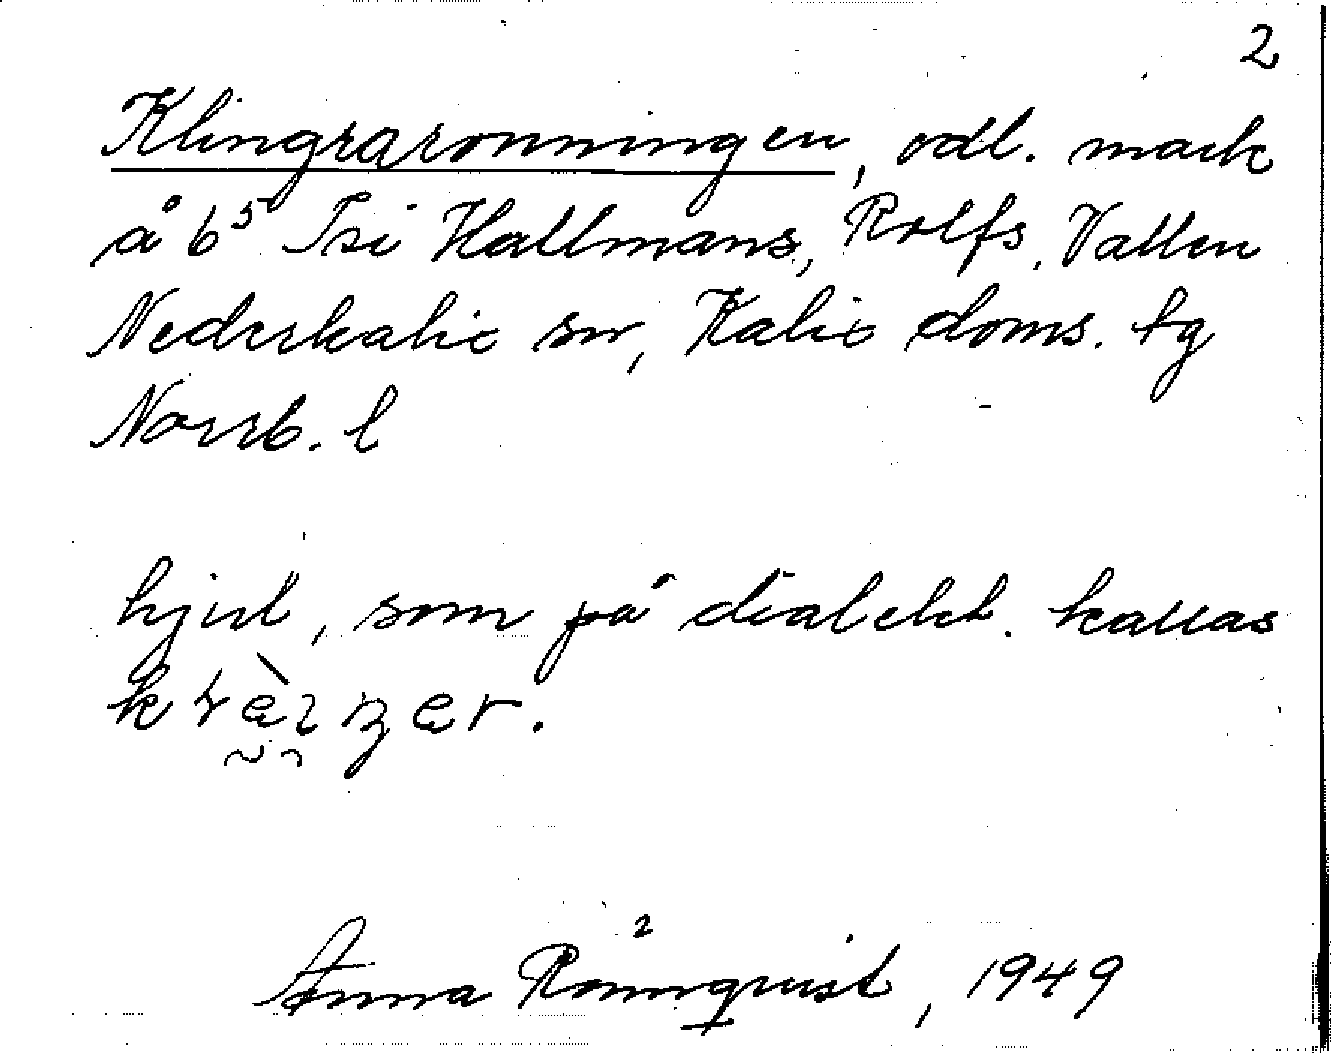 2
Klingraronningen, odl. mark
å b⁵ Isi Hallmans, Rolfs, Vallen
Nederkalix sn, Kalix doms. tg
Norrb. l
hjul, som på dialekt. kallas
Anna Rönnquist, 1949